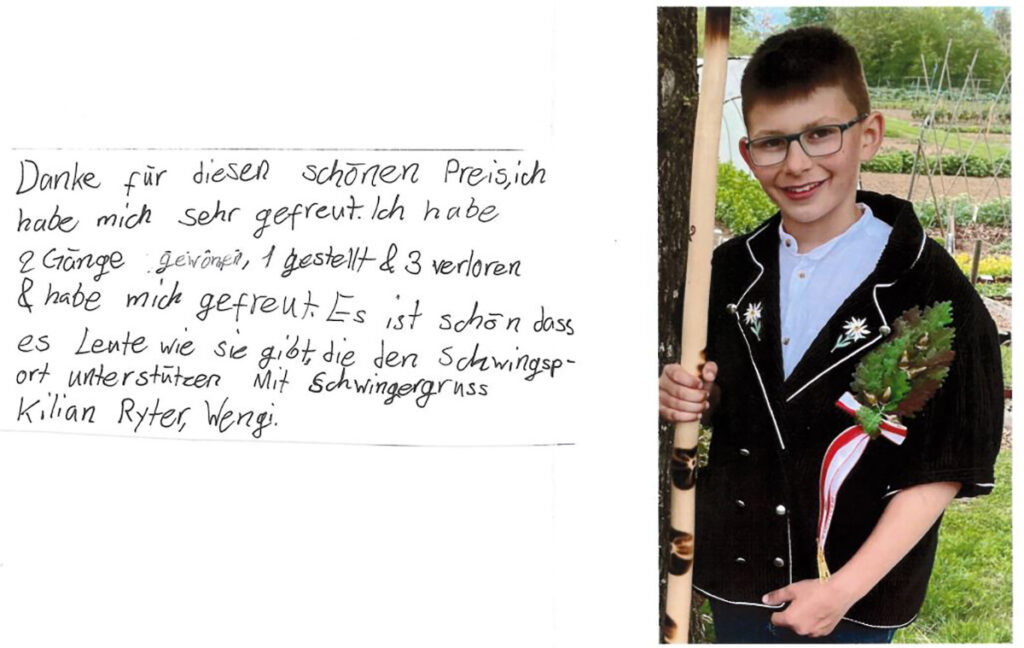 Danke für diesen schönen Preis, ich
habe mich sehr gefreut. Ich habe
2 Gänge gewönen, 1 gestellt & 3 verloren
& habe mich gefreut. Es ist schön dass
es Leute wie sie gibt, die den Schwingsp-
ort unterstützen Mit Schwingergruss
Kilian Ryter, Wengi.